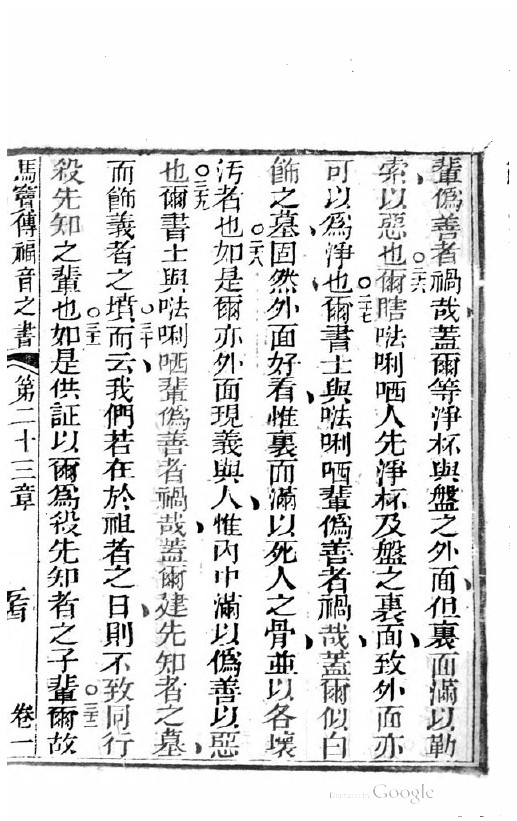 輩偽善者禍哉蓋爾等淨杯與盤之外面但裏面滿以勒
索以惡也○二六爾瞎㕸唎哂人先淨杯及盤之裏面致外面亦
可以為淨也○二七爾書士與㕸唎哂輩偽善者禍哉蓋爾似白
飾之墓固然外面好看惟裏面滿以死人之骨並以各壞
污者也○二八如是爾亦外面現義與人惟內中滿以偽善以惡
也○二九爾書士與㕸唎哂輩偽善者禍哉蓋爾建先知者之墓
而飾義者之墳○三十而云我們若在於祖者之日則不致同行
殺先知之輩也○三一如是供証以爾為殺先知者之子輩○三二爾故
馬竇傳福音之書 第二十三章 卷一
Digitized by Google